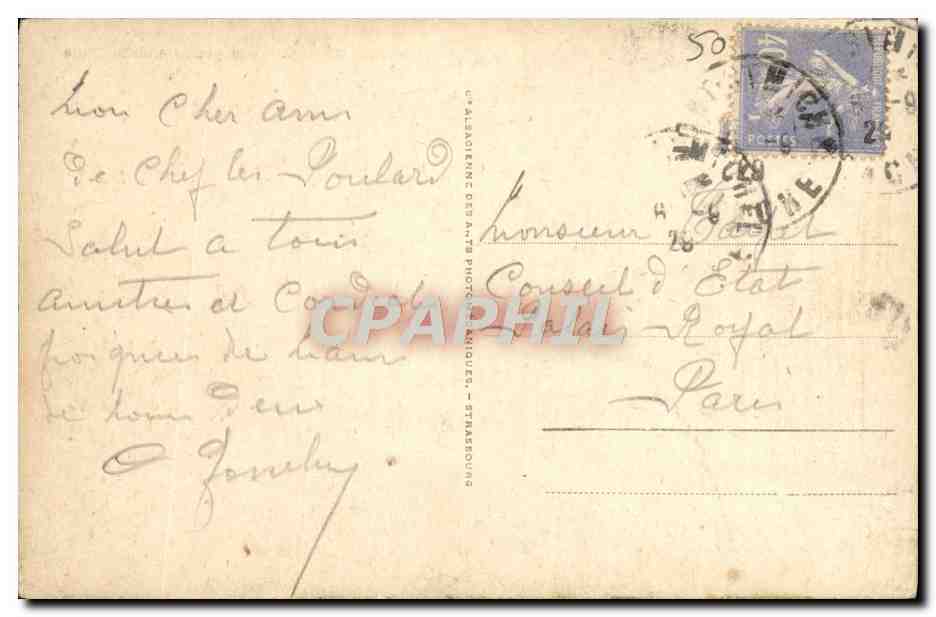 50
40
POSTES
Mon cher ami
de chez les Poulard
Salut a tous
amitiés et Cordiales
poignées de mains
de nous deux
Cie ALSACIENNE DES ARTS PHOTOMÉCANIQUES. - STRASBOURG
Monsieur
Conseil d'Etat
Palais Royal
Paris
CPAPHIL